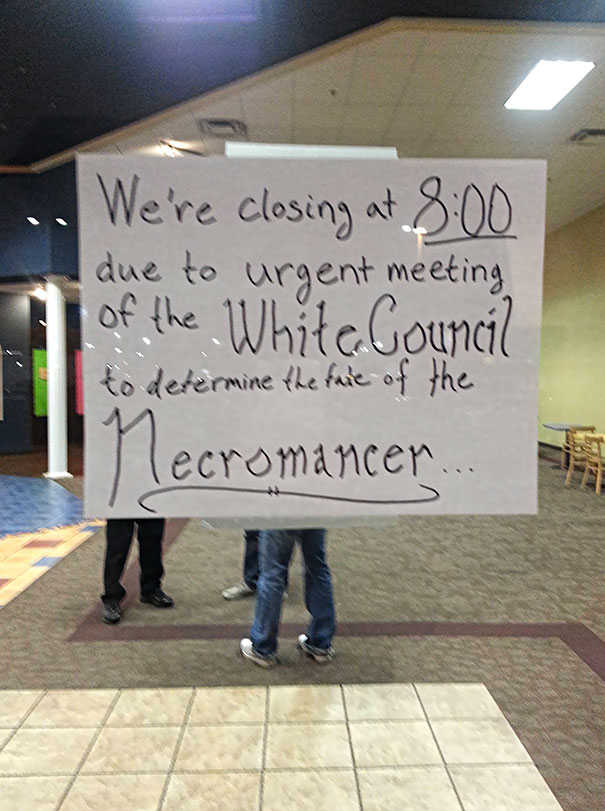 We're closing at 8:00
due to urgent meeting
of the White Council
to determine the fate of the
Necromancer...